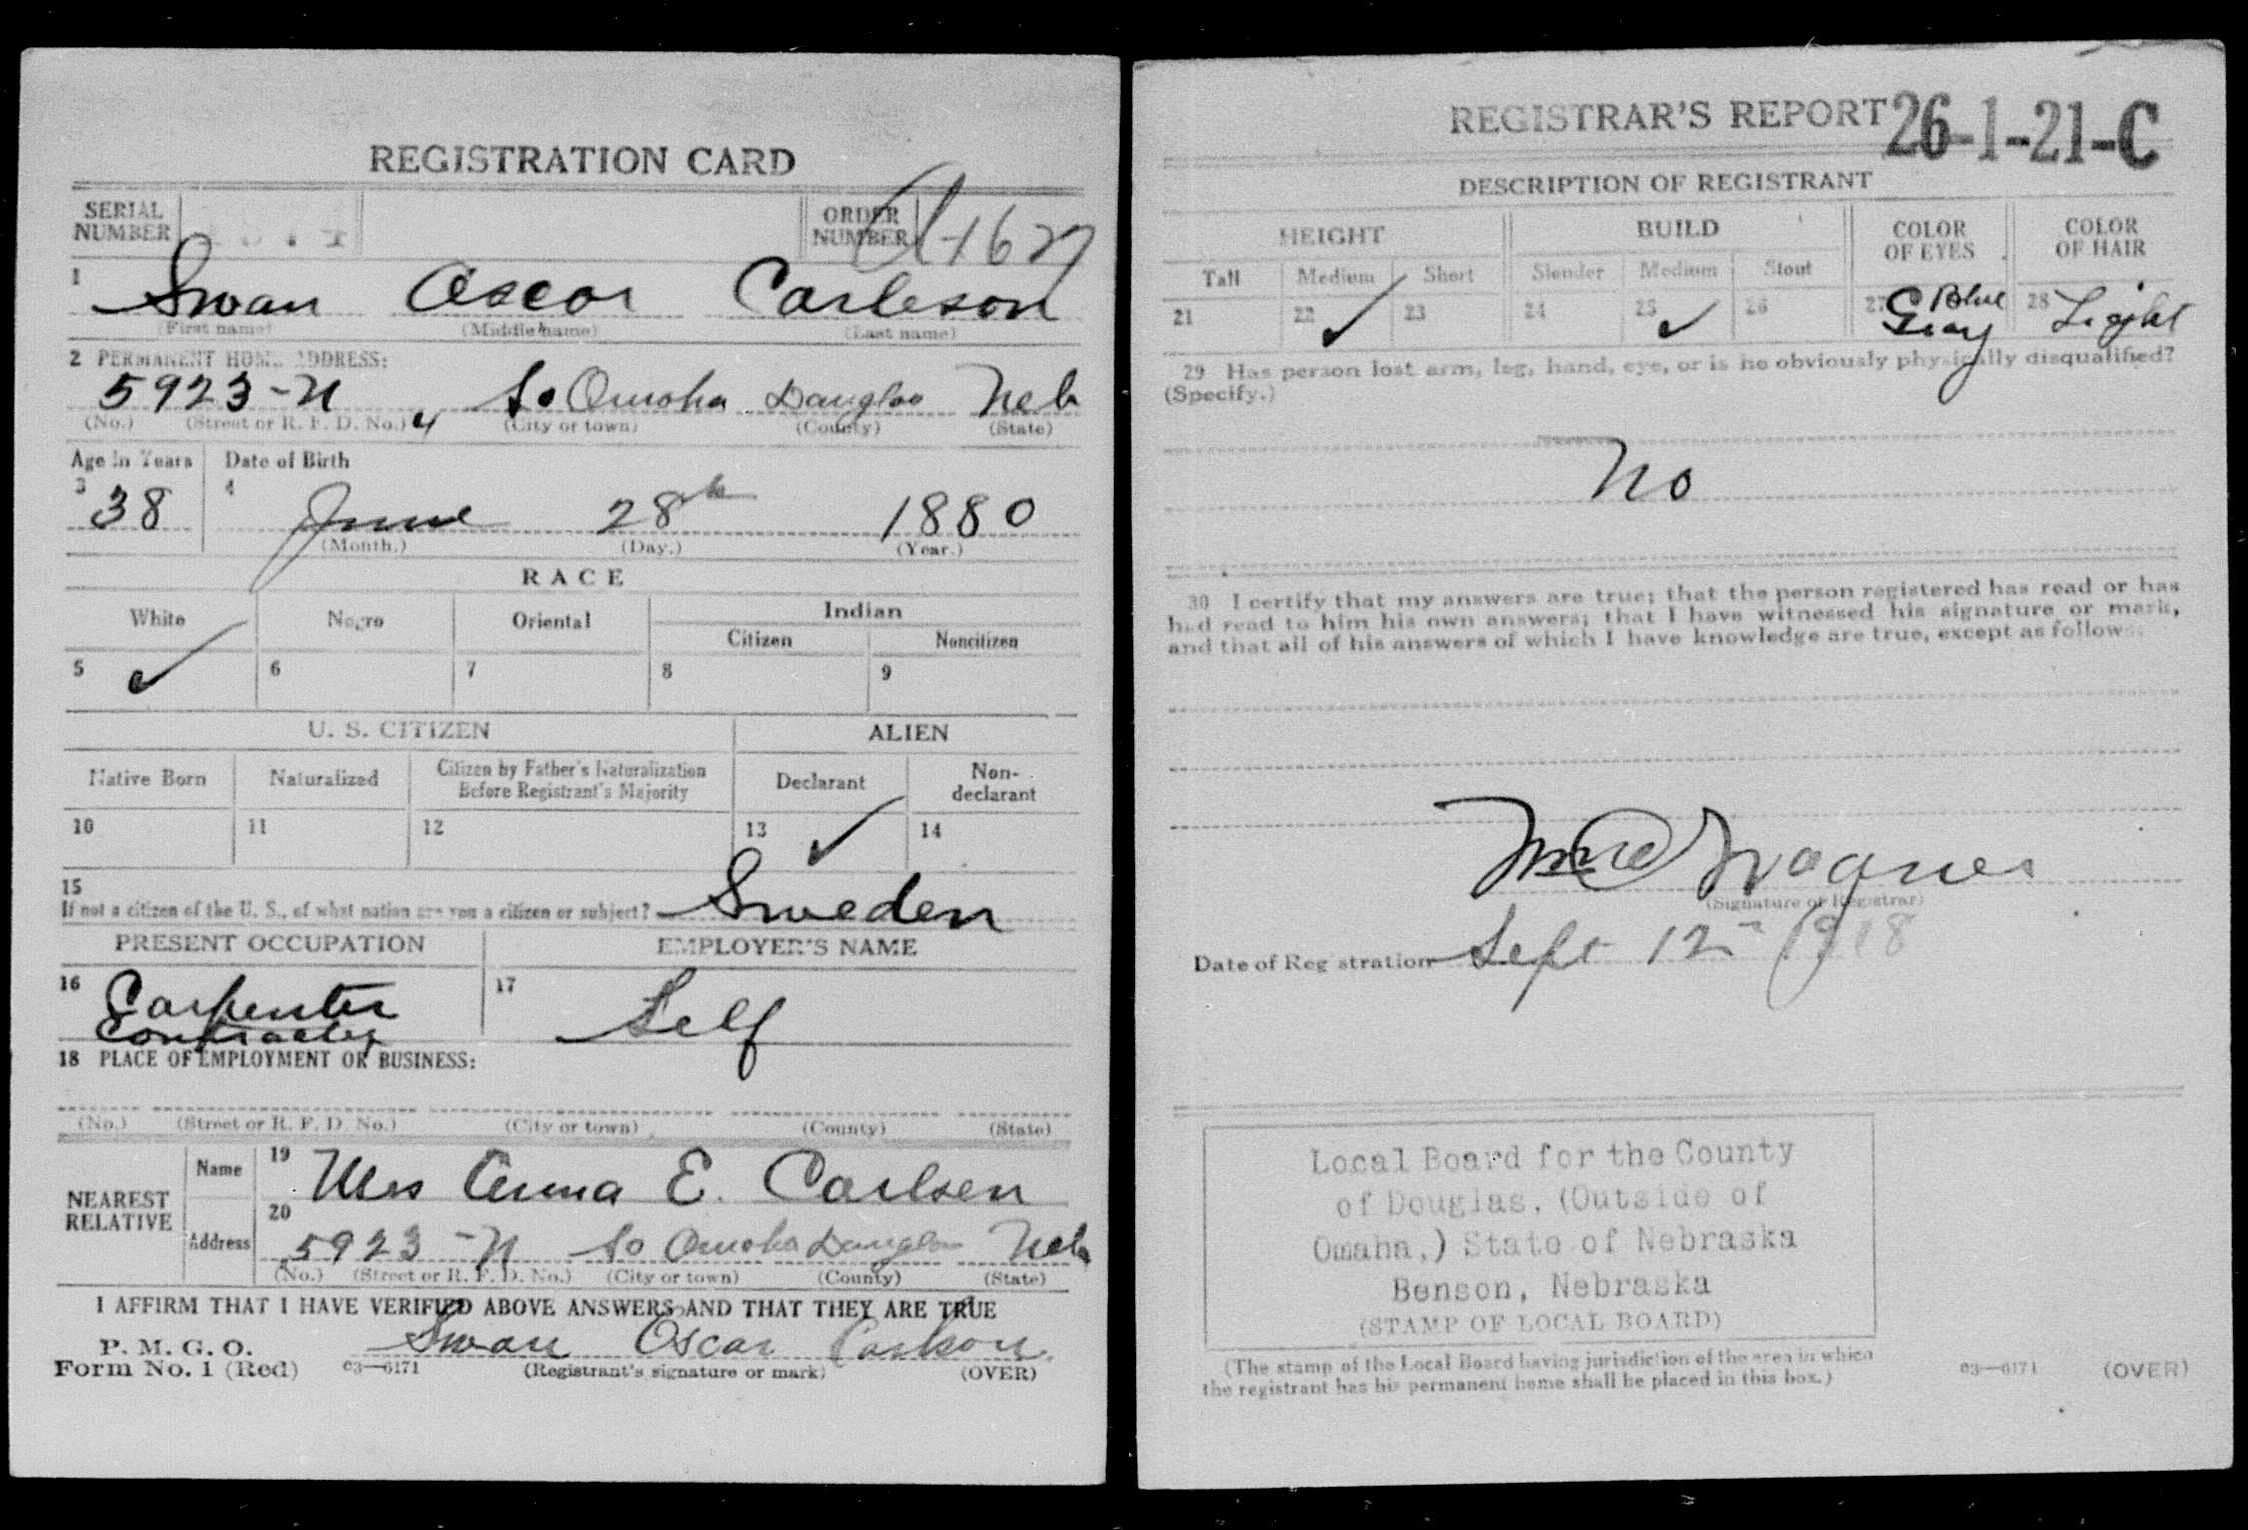 REGISTRATION CARD
SERIAL NUMBER
ORDER NUMBER A1627
1 Swan Oscar Carleson
(First name) (Middle name) (Last name)
2 PERMANENT HOME ADDRESS:
5923-N So Omaha Douglas Neb
(No.) (Street or R. F. D. No.) (City or town) (County) (State)
Age in Years Date of Birth
3 38 4 June 28th 1880
(Month.) (Day.) (Year.)
RACE
White Negro Oriental Indian
Citizen Noncitizen
5 ✓ 6 7 8 9
U. S. CITIZEN ALIEN
Native Born Naturalized Citizen by Father's Naturalization Before Registrant's Majority Declarant Non-declarant
10 11 12 13 ✓ 14
15
If not a citizen of the U. S., of what nation are you a citizen or subject? Sweden
PRESENT OCCUPATION EMPLOYER'S NAME
16 Carpenter 17 Self
Contractor
18 PLACE OF EMPLOYMENT OR BUSINESS:
(No.) (Street or R. F. D. No.) (City or town) (County) (State)
NEAREST RELATIVE
Name 19 Mrs Anna E. Carlsen
Address 20 5923-N So Omaha Douglas Neb
(No.) (Street or R. F. D. No.) (City or town) (County) (State)
I AFFIRM THAT I HAVE VERIFIED ABOVE ANSWERS AND THAT THEY ARE TRUE
P. M. G. O.
Form No. 1 (Red) 03—6171 Swan Oscar Carlson
(Registrant's signature or mark) (OVER)
REGISTRAR'S REPORT 26-1-21-C
DESCRIPTION OF REGISTRANT
HEIGHT BUILD COLOR OF EYES COLOR OF HAIR
Tall Medium Short Slender Medium Stout
21 22 ✓ 23 24 25 ✓ 26 27 Blue Gray 28 Light
29 Has person lost arm, leg, hand, eye, or is he obviously physically disqualified?
(Specify.)
No
30 I certify that my answers are true; that the person registered has read or has
had read to him his own answers; that I have witnessed his signature or mark,
and that all of his answers of which I have knowledge are true, except as follows:
Wagner
(Signature of Registrar)
Date of Registration Sept 12 1918
Local Board for the County
of Douglas, (Outside of
Omaha,) State of Nebraska
Benson, Nebraska
(STAMP OF LOCAL BOARD)
(The stamp of the Local Board having jurisdiction of the area in which
the registrant has his permanent home shall be placed in this box.)
03—6171 (OVER)